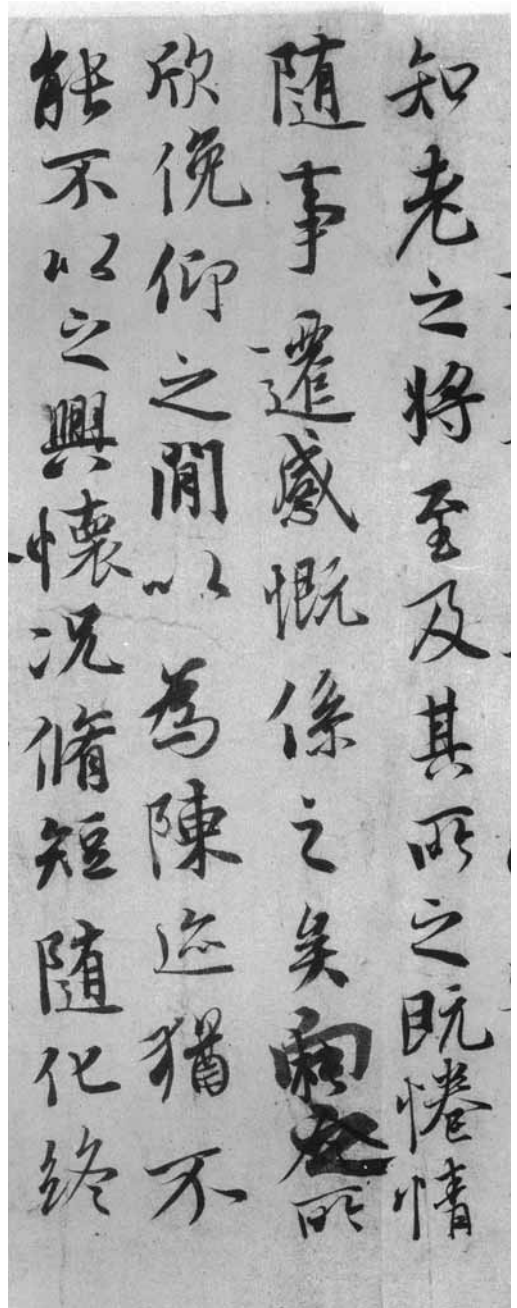 知老之將至及其所之既惓情
隨事遷感慨係之矣向之所
欣俛仰之閒以為陳迹猶不
能不以之興懷況脩短隨化終